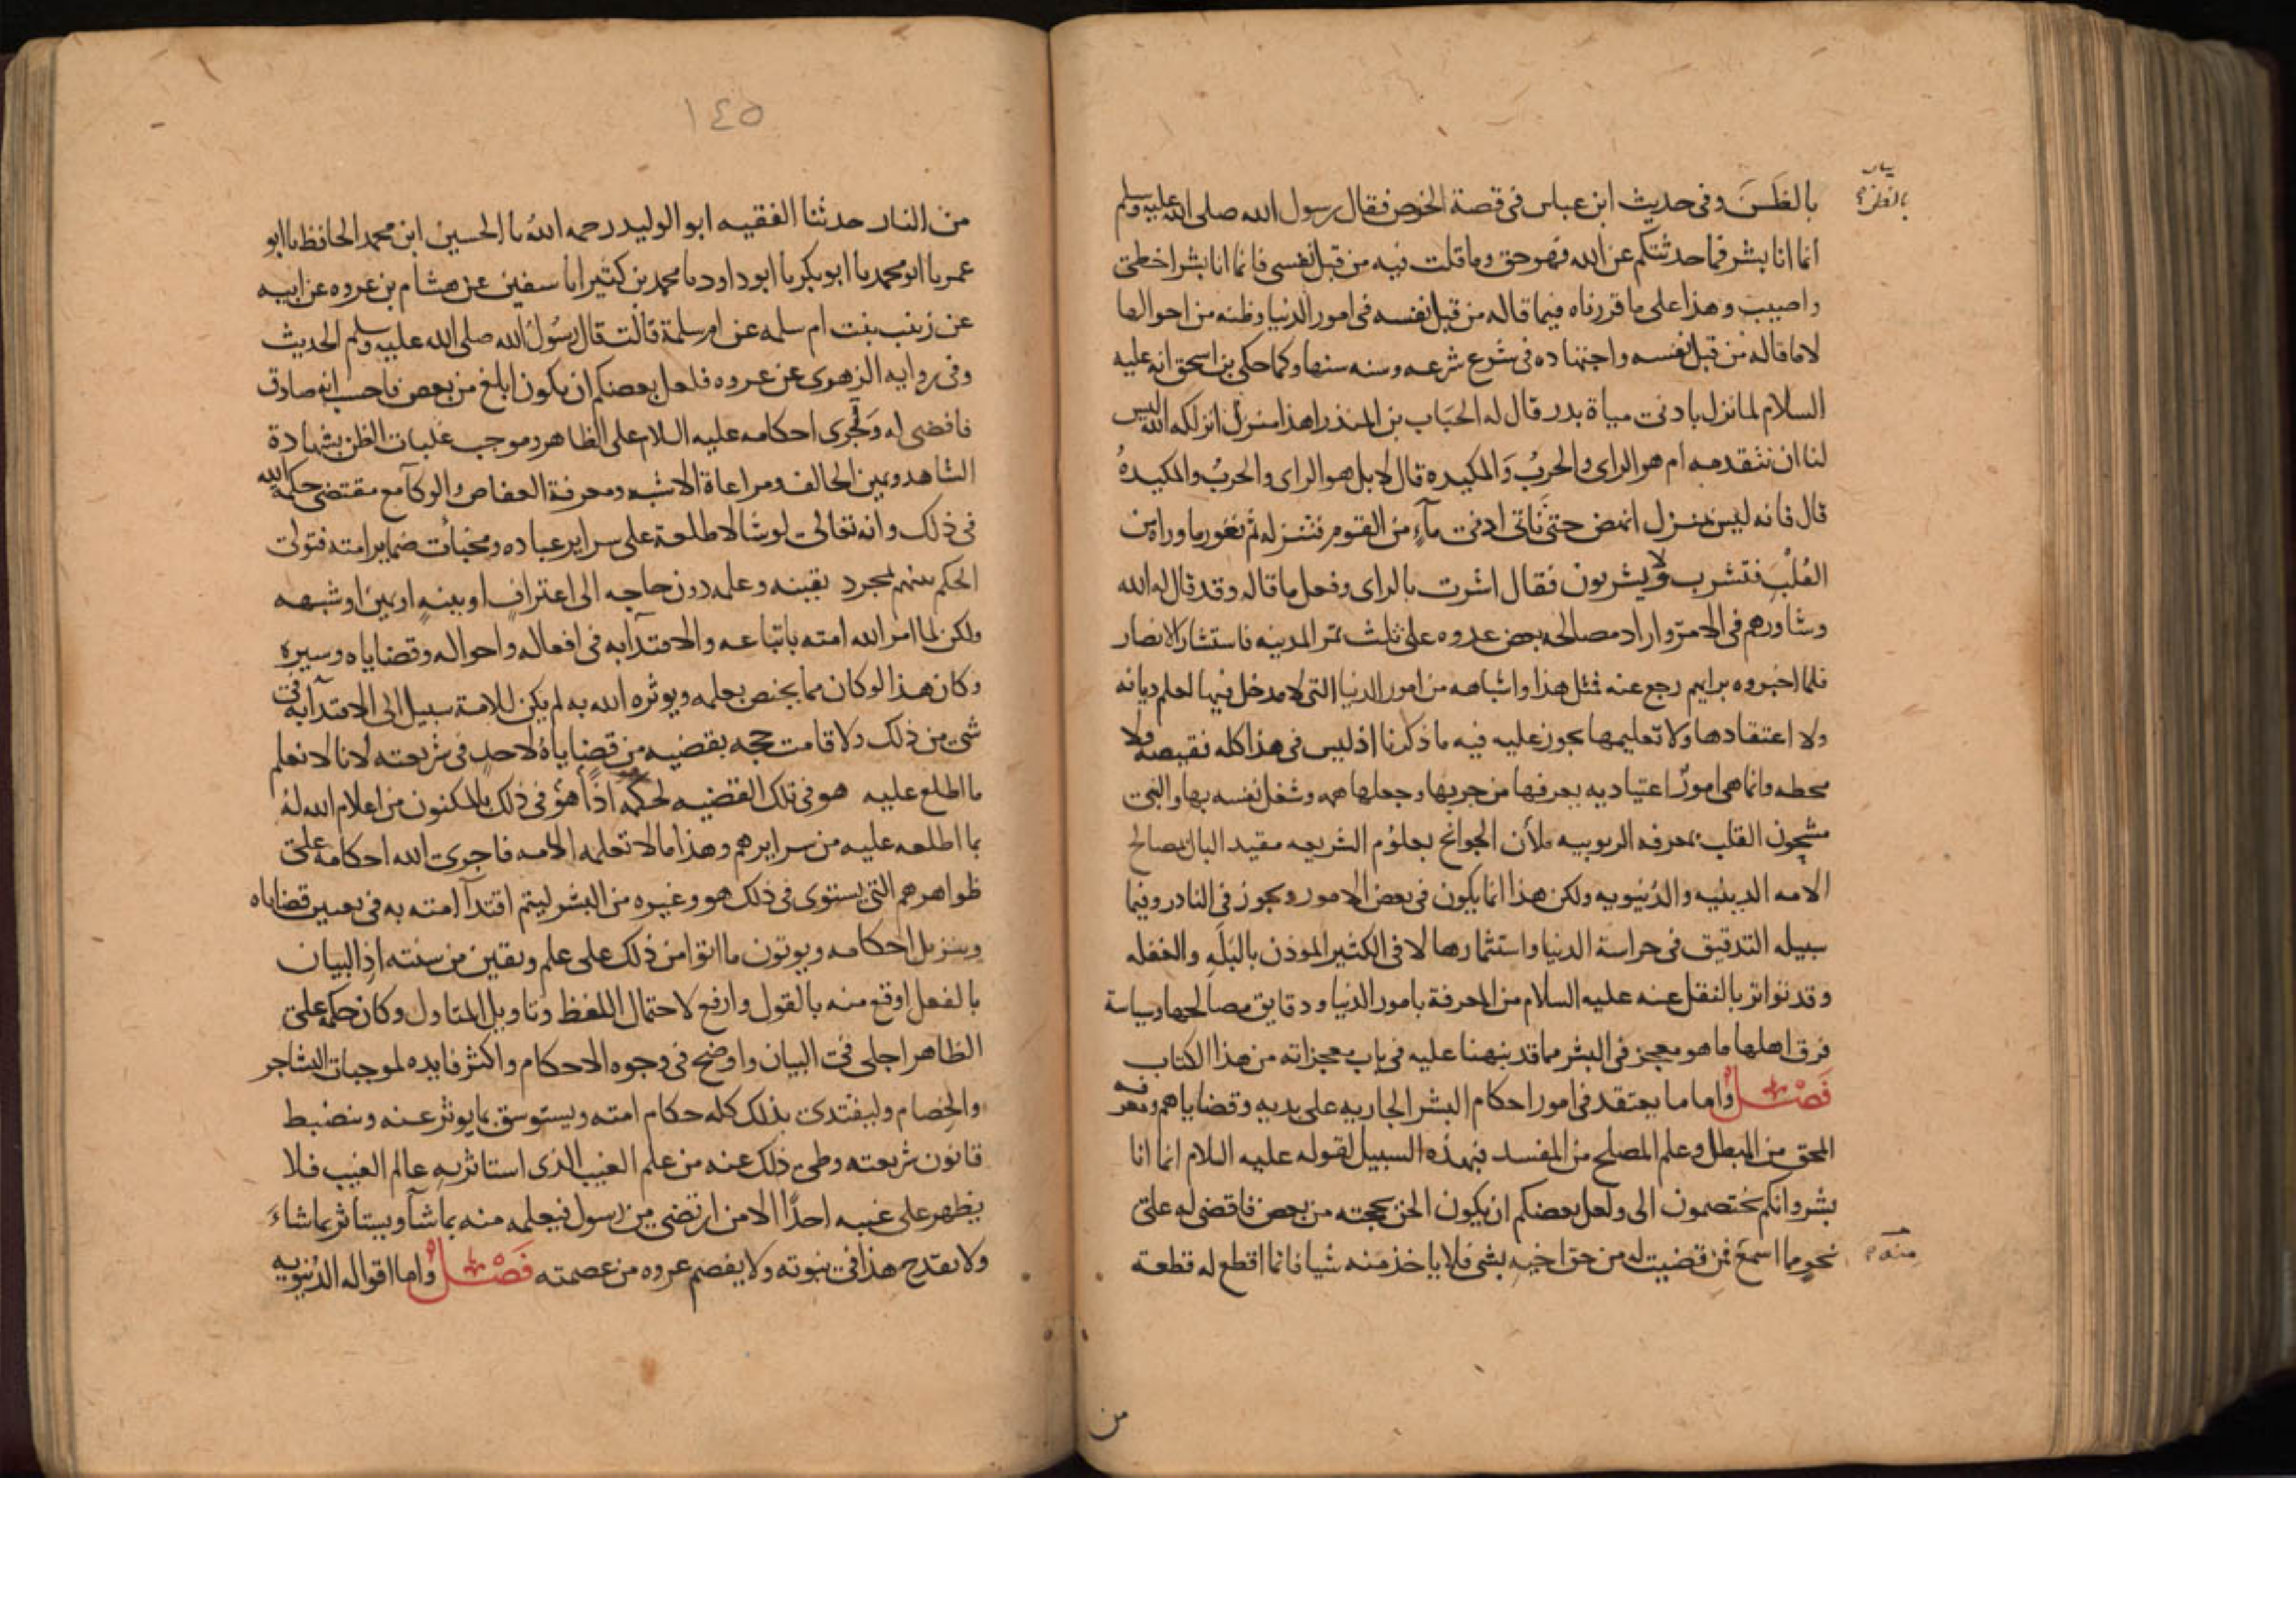 بالظَنَ وفى حديث ابن عباس فى قصة الخرص فقال رسول الله صلى الله عليه وسلم
انما انا بشر فما حدثتكم عن الله فهو حق وما قلت فيه من قبل نفسى فانما انا بشر اخطى
واصيب وهذا على ما قررناه فيما قاله من قبل نفسه فى امور الدنيا وظنه من احوالها
لا ما قاله من قبل نفسه واجتهاده فى شرع شرعه وسنه سنها وكما حكى بن اسحق انه عليه
السلام لما نزل بادنى مياة بدر قال له الحباب بن المنذر اهذا منزل انزلكه الله ليس
لنا ان نتقدمه ام هو الراى والحربُ والمكيده قال لا بل هو الراى والحربُ والمكيدهُ
قال فانه ليس بمنزل انهض حتى ناتى ادنى مآءٍ من القوم فننزله ثم نغور ما وراه من
القُلُبِ فنشرب ولا يشربون فقال اشرت بالراى وفعل ما قاله وقد قال له الله
وشاورهم فى الامر واراد مصالحه بعض عدوه على ثلث تمر المدينه فاستشار الانصار
فلما اخبروه برايهم رجع عنه فمثل هذا واشباهه من امور الدنيا التى لا مدخل فيها لعلم ديانه
ولا اعتقادها ولا تعليمها يجوز عليه فيه ما ذكرنا اذ ليس فى هذا كله نقيصه ولا
محطه وانما هى امورٌ اعتياديه يعرفها من جربها وجعلها همه وشغل نفسه بها والنبى
مشحون القلب بمعرفه الربوبيه ملأن الجوانح بعلوم الشريعه مقيد البال بمصالح
الامه الدينيه والدنيويه ولكن هذا انما يكون فى بعض الامور ويجوز فى النادر وفيما
سبيله التدقيق فى حراسة الدنيا واستثمارها لا فى الكثير الموذن بالبَلَهِ والغفله
وقد تواتر بالنقل عنه عليه السلام من المعرفة بامور الدنيا ودقايق مصالحها وسياسة
فرق اهلها ما هو معجز فى البشر مما قد نبهنا عليه فى باب معجزاته من هذا الكتاب
فَصْلٌ واما ما يعتقد فى امور احكام البشر الجاريه على يديه وقضاياهم ومعرفه
المحق من المبطل وعلم المصلح من المفسد فبهذه السبيل لقوله عليه السلام انما انا
بشر وانكم تختصمون الى ولعل بعضكم ان يكون الحن بحجته من بعض فاقضى له على
نحوٍ مما اسمع فمن قضيت له من حق اخيه بشى فلا ياخذ منه شيا فانما اقطع له قطعة
منه
من
١٤٥
من النار حدثنا الفقيه ابو الوليد رحمه اللهُ نا الحسين ابن محمد الحافظ نا ابو
عمر نا ابو محمد نا ابو بكر نا ابو داود نا محمد بن كثير انا سفين عن هشام بن عروه عن ابيه
عن زينب بنت ام سلمه عن ام سلمة قالت قال رسُولُ الله صلى الله عليه وسلم الحديث
وفى روايه الزهرى عن عروه فلعل بعضكم ان يكون ابلغ من بعض فاحسب انه صادق
فاقضى له وتُجرى احكامه عليه السلام على الظاهر وموجب غلبات الظن بشهادة
الشاهد ويمين الحالف ومراعاة الاشبه ومعرفة العفاص والوكآ مع مقتضى حكمة الله
فى ذلك وانه تعالى لو شا لاطلعه على سراير عباده ومخبأت ضماير امته فتولى
الحكم بينهم بمجرد يقينه وعلمه دون حاجه الى اعترافٍ او بينهٍ او يمينٍ او شبهه
ولكن لما امر الله امته باتباعه والاقتدآ به فى افعاله واحواله وقضاياه وسيره
وكان هذا لو كان مما يختص بعلمه ويوثره الله به لم يكن للامة سبيل الى الاقتدآ به فى
شى من ذلك ولا قامت حجه بقضيه من قضاياهُ لاحدٍ فى شريعته لانا لا نعلم
ما اطلع عليه هو فى تلك القضيه لحكمه اذًا هو فى ذلك بالمكنون من اعلام الله لهُ
بما اطلعه عليه من سرايرهم وهذا ما لا تعلمه الامه فاجرى الله احكامه على
ظواهرهم التى يستوى فى ذلك هو وغيره من البشر ليتم اقتدآ امته به فى تعيين قضاياه
وتنزيل احكامه وياتون ما اتوا من ذلك على علم ويقين من سنته اذ البيان
بالفعل اوقع منه بالقول وارفع لاحتمال اللفظ وتاويل المتاول وكان حكمه على
الظاهر اجلى فى البيان واوضح فى وجوه الاحكام واكثر فايده لموجبات التشاجر
والخصام وليقتدى بذلك كله حكام امته ويستوسق بما يوثر عنه وينضبط
قانون شريعته وطى ذلك عنه من علم الغيب الذى استاثر به عالم الغيب فلا
يظهر على غيبه احدًا الا من ارتضى من رسول فيعلمه منه بما شآ ويستاثر بما شاءَ
ولا يقدح هذا فى نبوته ولا يفصم عروه من عصمته فَصْلٌ واما اقواله الدنيويه